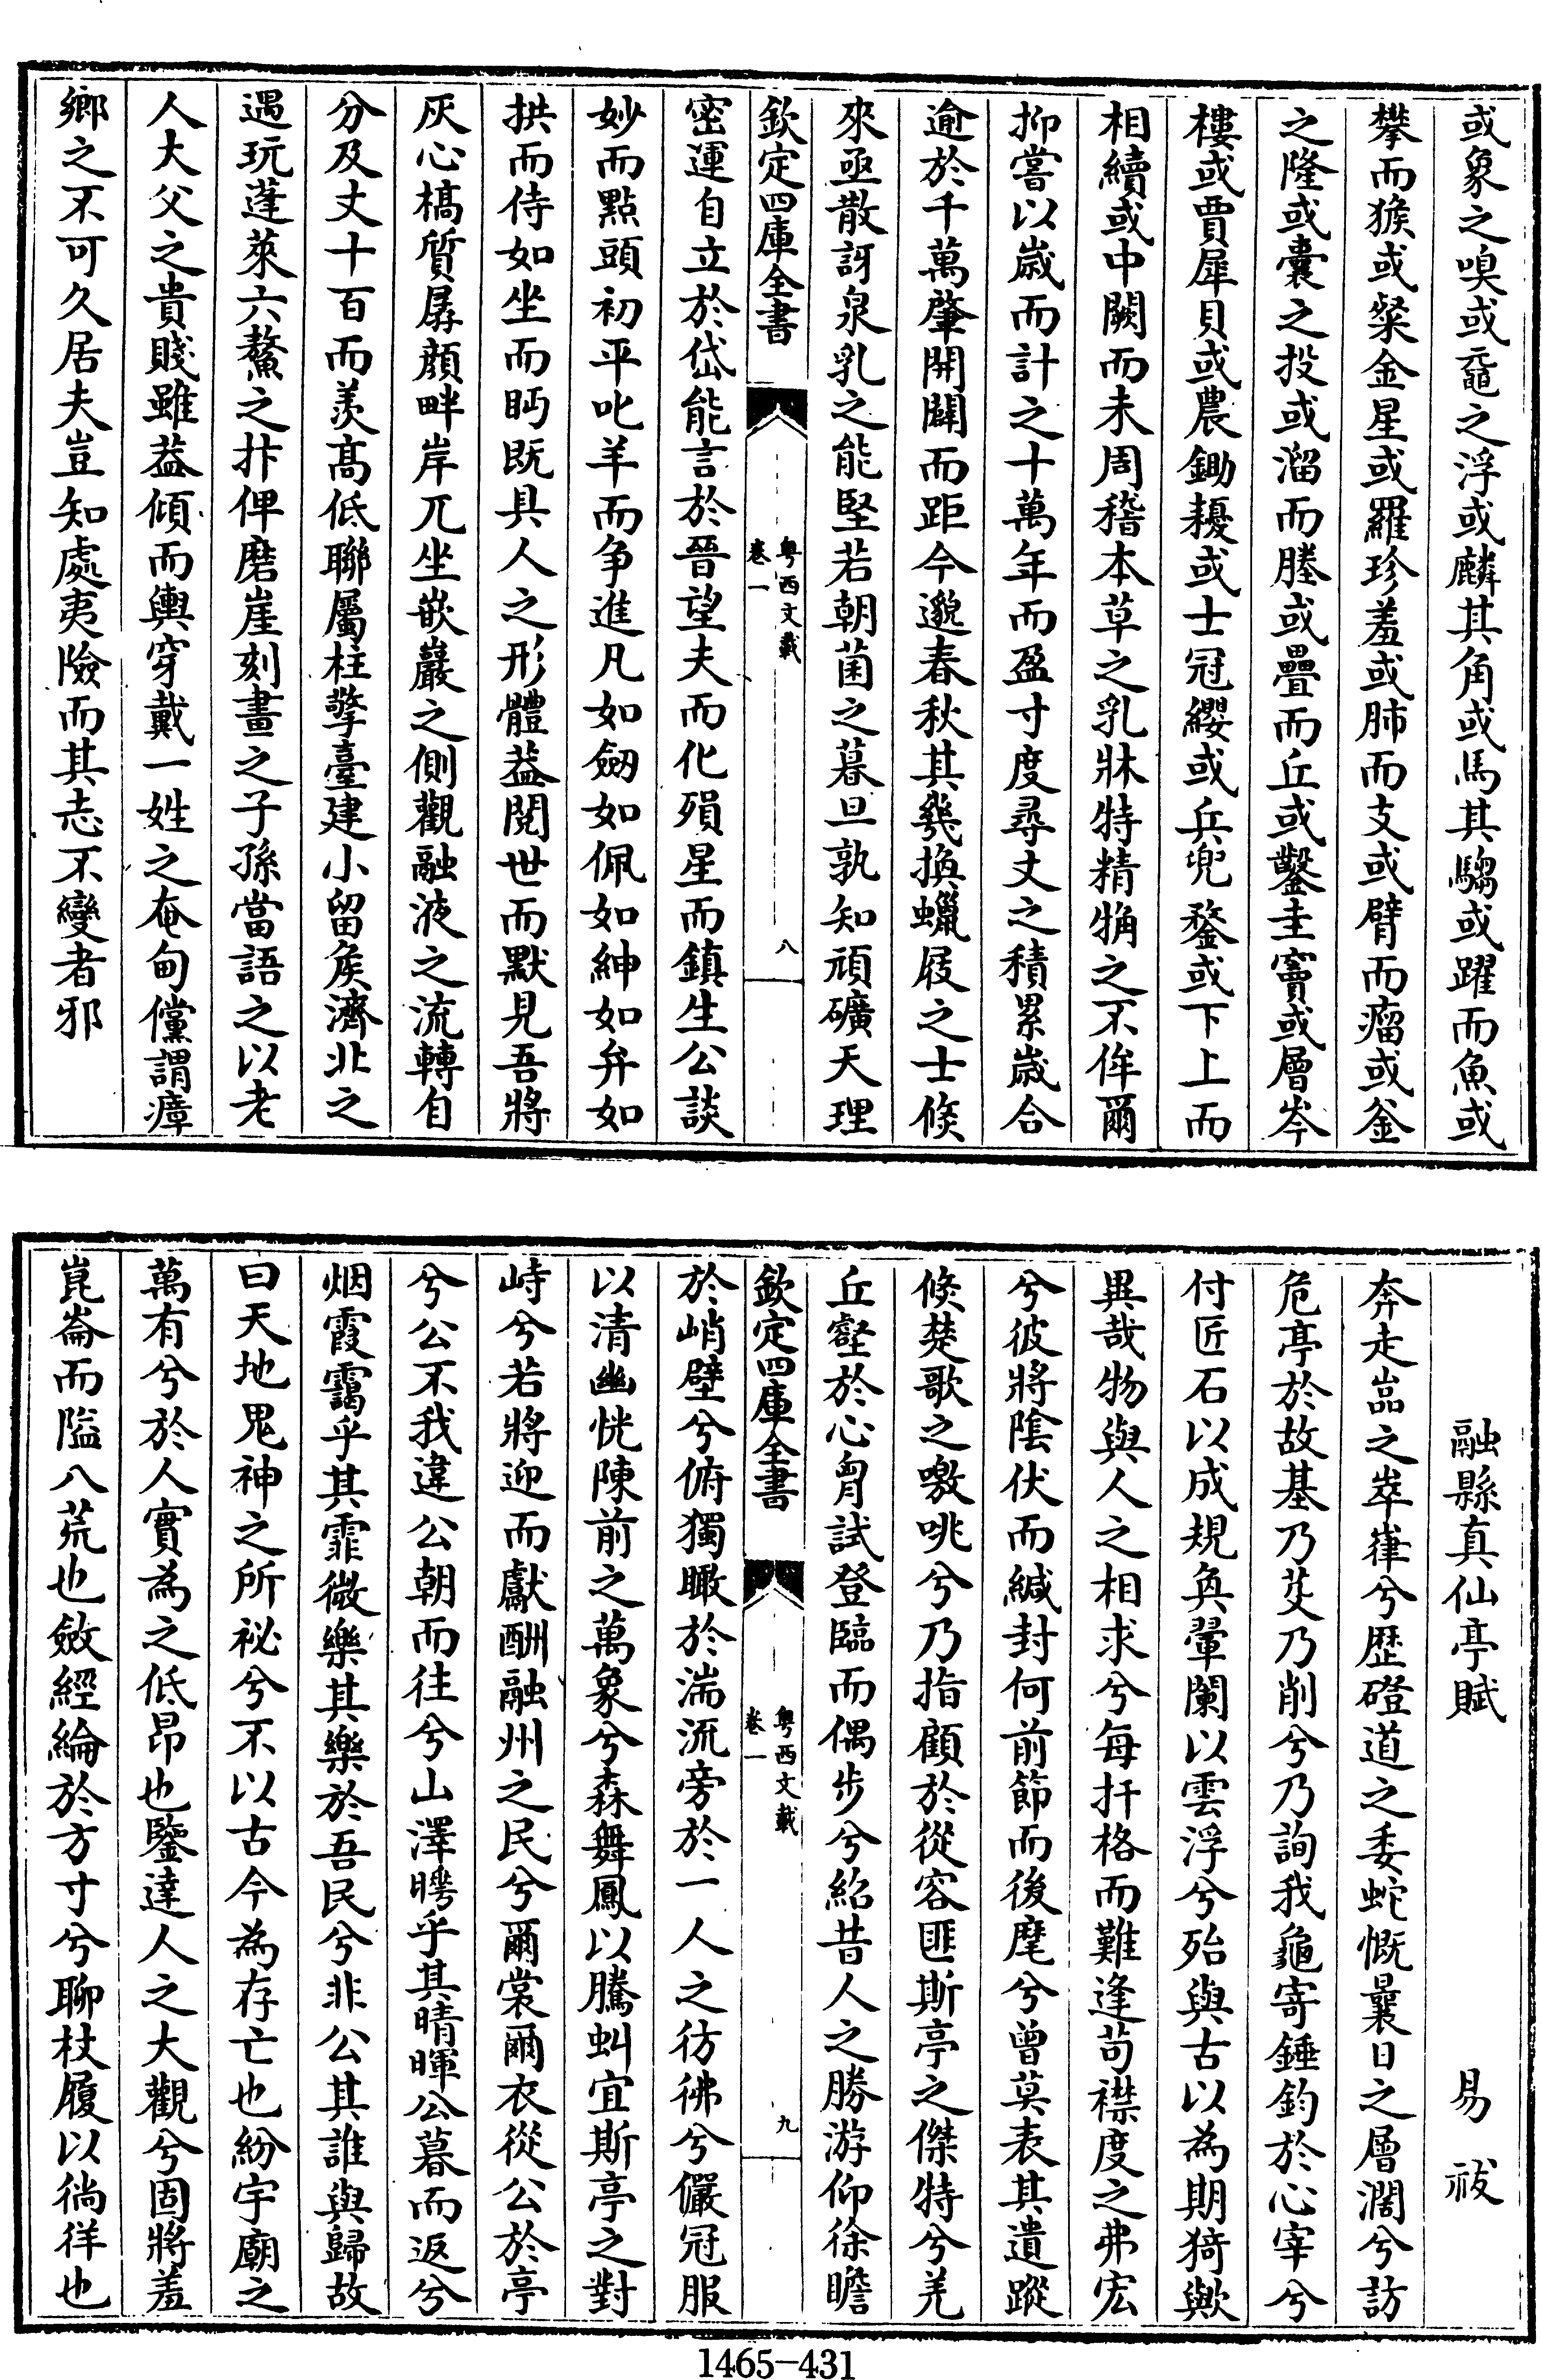 或象之嗅或黿之浮或麟其角或馬其騶或躍而魚或
攀而猴或粲金星或羅珍羞或肺而支或臂而瘤或釜
之隆或囊之投或溜而塍或疊而丘或鑿圭竇或層岑
樓或賈犀貝或農鋤耰或士冠纓或兵兜鍪或下上而
相續或中闕而未周稽本草之乳牀特精觕之不侔爾
抑嘗以歲而計之十萬年而盈寸度尋丈之積累歲合
逾於千萬肇開闢而距今邈春秋其幾換蠟屐之士倐
來亟散訝泉乳之能堅若朝菌之暮旦孰知頑礦天理
欽定四庫全書
粤西文載
卷一
八
密運自立於岱能言於晉望夫而化殞星而鎮生公談
妙而點頭初平叱羊而争進凡如劒如佩如紳如弁如
拱而侍如坐而眄既具人之形體葢閲世而默見吾將
灰心槁質孱顔畔岸兀坐嵌巖之側觀融液之流轉自
分及丈十百而羨髙低聯屬柱擎臺建小留矦濟北之
遇玩蓬萊六鰲之抃俾磨崖刻畫之子孫當語之以老
人大父之貴賤雖葢傾而輿穿戴一姓之奄甸儻謂瘴
鄉之不可久居夫豈知處夷險而其志不變者邪
融縣真仙亭賦
易祓
奔走嵓之崒嵂兮歴磴道之委蛇慨曩日之層濶兮訪
危亭於故基乃芟乃削兮乃詢我龜寄錘鈞於心宰兮
付匠石以成規奐翬闌以雲浮兮殆與古以為期猗歟
異哉物與人之相求兮每扞格而難逢苟襟度之弗宏
兮彼將陰伏而緘封何前節而後麾兮曾莫表其遺蹤
倐楚歌之噭咷兮乃指顧於從容匪斯亭之傑特兮羌
丘壑於心胷試登臨而偶步兮紹昔人之勝游仰徐瞻
欽定四庫全書
粤西文載
卷一
九
於峭壁兮俯獨瞰於湍流旁於一人之彷彿兮儼冠服
以清幽恍陳前之萬象兮森舞鳳以騰虯宜斯亭之對
峙兮若將迎而獻酬融州之民兮爾裳爾衣從公於亭
兮公不我違公朝而往兮山澤㬅乎其晴暉公暮而返兮
烟霞靄乎其霏微樂其樂於吾民兮非公其誰與歸故
曰天地鬼神之所祕兮不以古今為存亡也紛宇廟之
萬有兮於人實為之低昂也鑒達人之大觀兮固將羞
崑崙而隘八荒也斂經綸於方寸兮聊杖履以徜徉也
1465-431